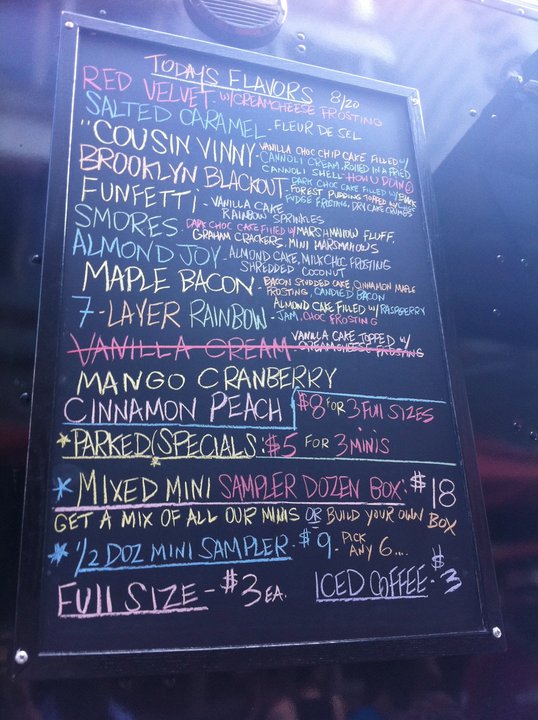 TODAY'S FLAVORS 8/20
RED VELVET - W/CREAMCHEESE FROSTING
SALTED CARAMEL - FLEUR DE SEL
"COUSIN VINNY - VANILLA CHOC CHIP CAKE FILLED W/
CANNOLI CREAM, ROLLED IN A FRIED
CANNOLI SHELL - HOW U DOIN
BROOKLYN BLACKOUT - DARK CHOC CAKE FILLED W/
FOREST PUDDING TOPPED W/
FUDGE FROSTING, DRY CAKE CRUMBS
FUNFETTI - VANILLA CAKE
RAINBOW SPRINKLES
SMORES - DARK CHOC CAKE FILLED W/ MARSHMALLOW FLUFF,
GRAHAM CRACKERS, MINI MARSHMALLOWS
ALMOND JOY - ALMOND CAKE, MILK CHOC FROSTING
SHREDDED COCONUT
MAPLE BACON - BACON STUDDED CAKE, CINNAMON MAPLE
FROSTING, CANDIED BACON
7-LAYER RAINBOW - ALMOND CAKE FILLED W/ RASPBERRY
JAM, CHOC FROSTING
VANILLA CREAM - VANILLA CAKE TOPPED W/
CREAMCHEESE FROSTING
MANGO CRANBERRY
CINNAMON PEACH $8 FOR 3 FULL SIZES
*PARKED SPECIALS: $5 FOR 3 MINIS
*MIXED MINI SAMPLER DOZEN BOX: $18
GET A MIX OF ALL OUR MINIS OR BUILD YOUR OWN BOX
* 1/2 DOZ MINI SAMPLER - $9. PICK
ANY 6....
FULL SIZE - $3 EA. ICED COFFEE - $3